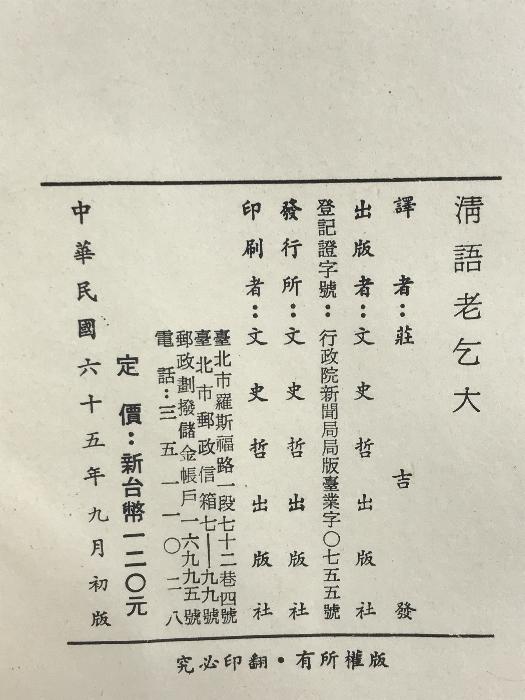 清語老乞大
譯者：莊吉發
出版者：文史哲出版社
登記證字號：行政院新聞局局版臺業字〇七五五號
發行所：文史哲出版社
印刷者：文史哲出版社
臺北市羅斯福路一段七十二巷四號
臺北市郵政信箱七—九九號
郵政劃撥儲金帳戶一六九九五號
電話：三五一一〇二八
定價：新台幣一二〇元
中華民國六十五年九月初版
究必印翻・有所權版